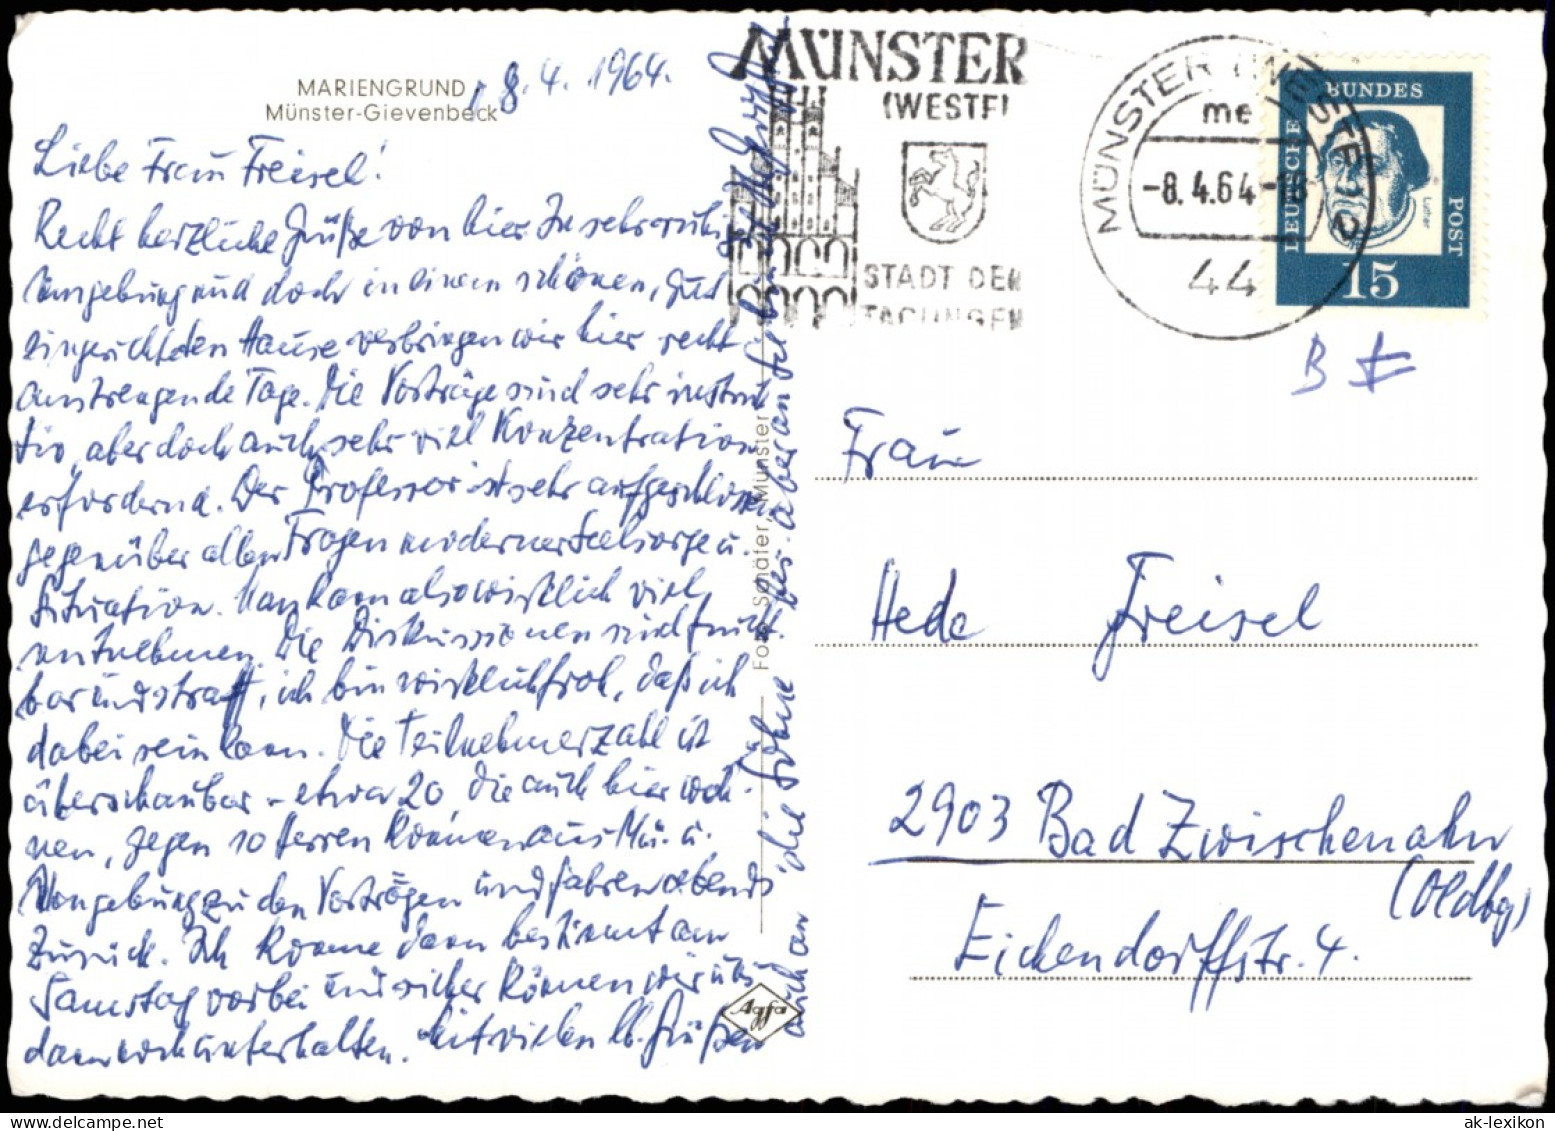 MARIENGRUND
Münster-Gievenbeck
8.4.1964.
Liebe Frau Freisel!
Recht herzliche Grüße von hier. In sehr ruhiger
Umgebung und doch in einem schönen, gut
eingerichteten Hause verbringen wir hier recht
anstrengende Tage. Die Vorträge sind sehr instruk
tiv, aber doch auch sehr viel Konzentration
erfordernd. Der Professor ist sehr aufgeschlossen
gegenüber allen Fragen moderner Seelsorge u.
Situation. Man kann also wirklich viel
entnehmen. Die Diskussionen sind frucht
bar und straff, ich bin wirklich froh, daß ich
dabei sein kann. Die Teilnehmerzahl ist
überschaubar - etwa 20, die auch hier woh-
nen, gegen 10 Herren kommen aus Mü. u.
Umgebung zu den Vorträgen und fahren abends
zurück. Ich komme dann bestimmt am
Samstag vorbei und sicher können wir uns
dann noch unterhalten. Mit vielen lb. Grüßen
auch an die Söhne
Foto Schäfer, Münster
Agfa
MÜNSTER
(WESTF)
STADT DER
TAGUNGEN
MÜNSTER (WESTF) 2
me
-8.4.64-18
44
DEUTSCHE BUNDESPOST
Luther
15
B
Frau
Hede Freisel
2903 Bad Zwischenahn
(Oldbg)
Eichendorffstr. 4.
ak-lexikon